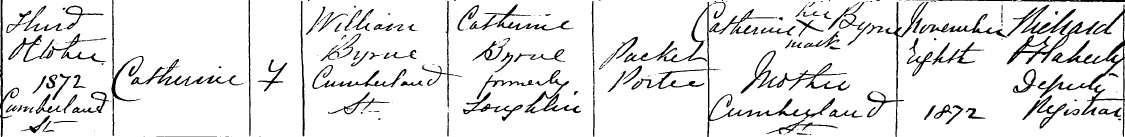 Third
October
1872
Cumberland
St
Catherine
F
William
Byrne
Cumberland
St
Catherine
Byrne
formerly
Loughlin
Packet
Porter
her
Catherine X Byrne
mark
Mother
Cumberland
St
November
Eighth
1872
Richard
O'Flaherty
Deputy
Registrar